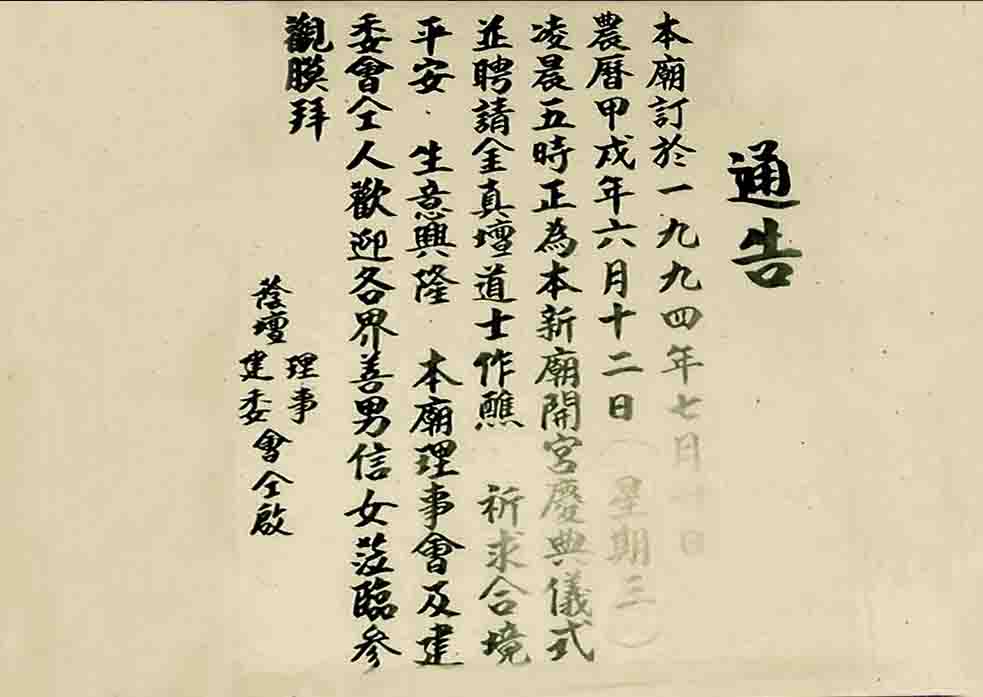 通告
本廟訂於一九九四年七月廿日
農曆甲戌年六月十二日（星期三）
凌晨五時正為本新廟開宮慶典儀式
並聘請全真壇道士作醮 祈求合境
平安 生意興隆 本廟理事會及建
委會仝人歡迎各界善男信女蒞臨參
觀膜拜
蔭壇
理事
建委
會仝啟